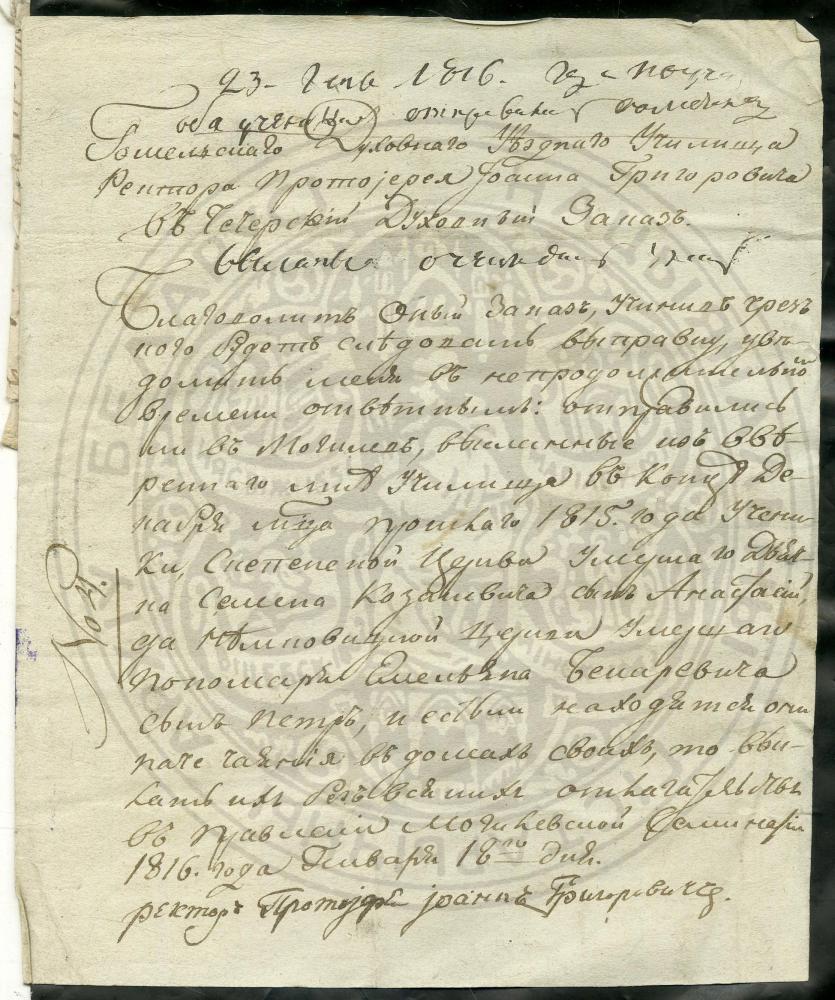 23- Генв 1816. Года
оба ученика отправлены
Гомельскаго Духовнаго Уѣзднаго Училища
Ректора Протоіерея Іоанна Григоровича
въ Чечерскій Духовный Заказъ.
высланы
Благоволитъ Оный Заказъ, Учинивъ чрезъ
кого будетъ слѣдовать выправку, увѣ-
домить меня въ непродолжительномъ
времени отвѣтнымъ: отправились
ли въ Могилевъ, высланные изъ ввѣ-
реннаго мнѣ Училища въ Концѣ Де-
кабря мѣца прошлаго 1815. года Учени-
ки, Церкви Умершаго Дьяч-
ка Семена Козловича сынъ Анастасій,
да Церкви Умершаго
Пономаря Емельяна Бекаревича
сынъ Петръ, и естьли находятся они
паче чаянія въ домахъ своихъ, то вы-
слать ихъ безъ всякихъ отлагательствъ
въ Правленіе Могилевской Семинаріи
1816. года Генваря 18го дня.
ректоръ Протоіерей Іоаннъ Григоровичъ.
No 4.